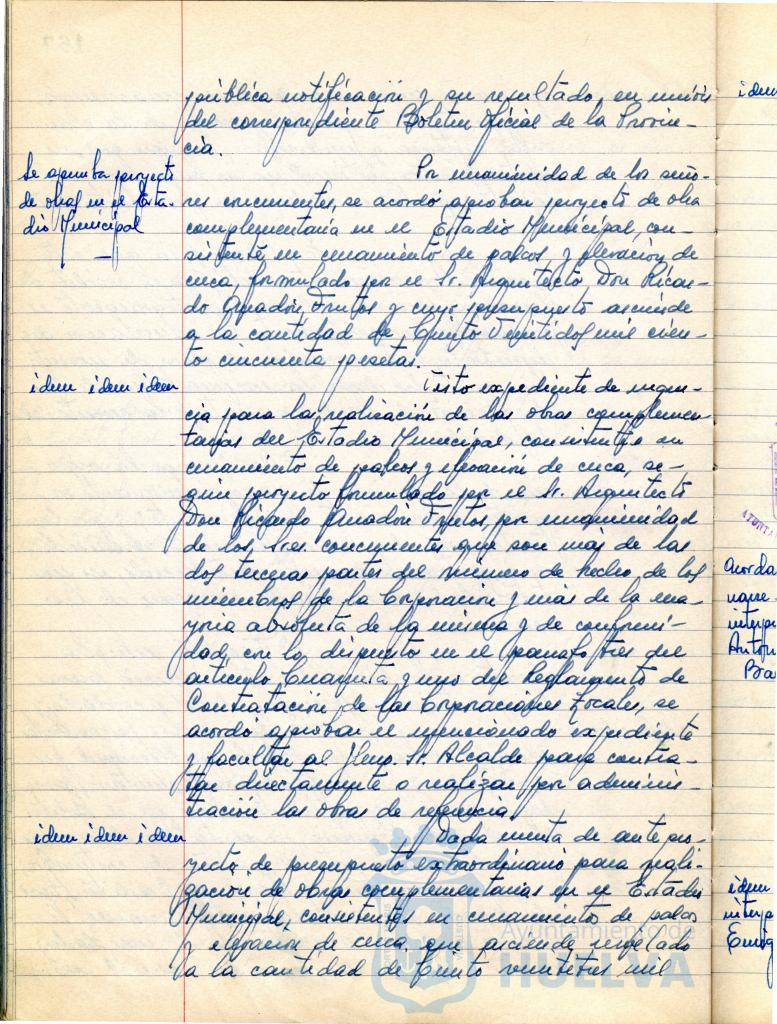 pública notificación y su resultado, en unión
del correspondiente Boletin Oficial de la Provin-
cia.
Se aprueba proyecto
de obras en el Esta-
dio Municipal
Por unanimidad de los seño-
res concurrentes, se acordó aprobar proyecto de obra
complementaria en el Estadio Municipal, con-
sistente en cerramiento de palcos, y elevación de
cerca, formulado por el Sr. Arquitecto Don Ricar-
do Anadón Frutos y cuyo presupuesto asciende
a la cantidad de Ciento Veintidos mil cien-
to cincuenta pesetas.
idem idem idem
Visto expediente de urgen-
cia para la realización de las obras complemen-
tarias del Estadio Municipal, consistentes en
cerramiento de palcos y elevación de cerca, se-
gún proyecto formulado por el Sr. Arquitecto
Don Ricardo Anadón Frutos, por unanimidad
de los Sres. concurrentes que son más de las
dos terceras partes del número de hecho de los
miembros de la Corporación y más de la ma-
yoria absoluta de la misma y de conformi-
dad, con lo dispuesto en el parrafo tres del
articulo Cuarenta y uno del Reglamento de
Contratación de las Corporaciones Locales, se
acordó aprobar el mencionado expediente
y facultar al Iltmo. Sr. Alcalde para contra-
tar directamente o realizar por adminis-
tración las obras de referencia.
idem idem idem
Dada cuenta de antepro-
yecto de presupuesto extraordinario para reali-
zación de obras complementarias en el Estadio
Municipal, consistentes en cerramiento de palcos
y elevación de cerca, que asciende nivelado
a la cantidad de Ciento veintitres mil
idem
Acorda
interp
Anton
Ba
idem
interp
Ayuntamiento de
HUELVA